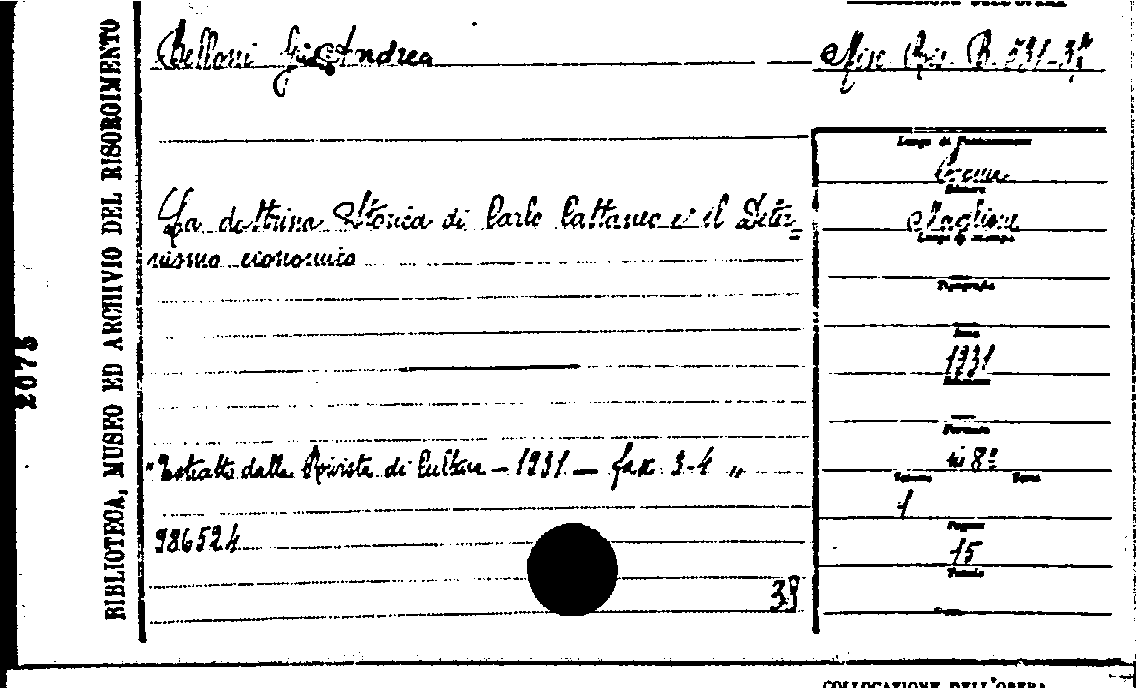 COLLOCAZIONE DELL'OPERA
Belloni Gio Andrea
Misc. Ris. B. 531-37
BIBLIOTECA, MUSEO ED ARCHIVIO DEL RISORGIMENTO
2075
La dottrina Storica di Carlo Cattaneo e il Deter=
nismo economico
Luogo di Pubblicazione
Roma
Editore
Maglione
Luogo di stampa
Tipografia
Anno
1931
Edizione
Formato
in 8°
Volume
1
Pagine
15
Tavole
"Estratto dalla Rivista di Cultura - 1931 - fasc. 3-4"
986524
39
COLLOCAZIONE DELL'OPERA